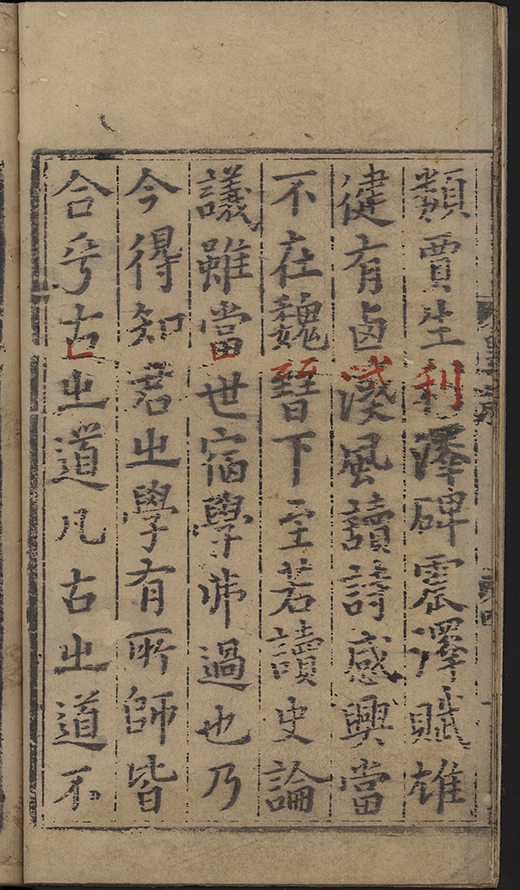 類賈生利澤碑震澤賦雄
健有卤漢風讀詩感興當
不在魏晉下至若讀史論
議雖當世宿學弗過也乃
今得知君㞢學有所師皆
合乎古㞢道凡古㞢道不